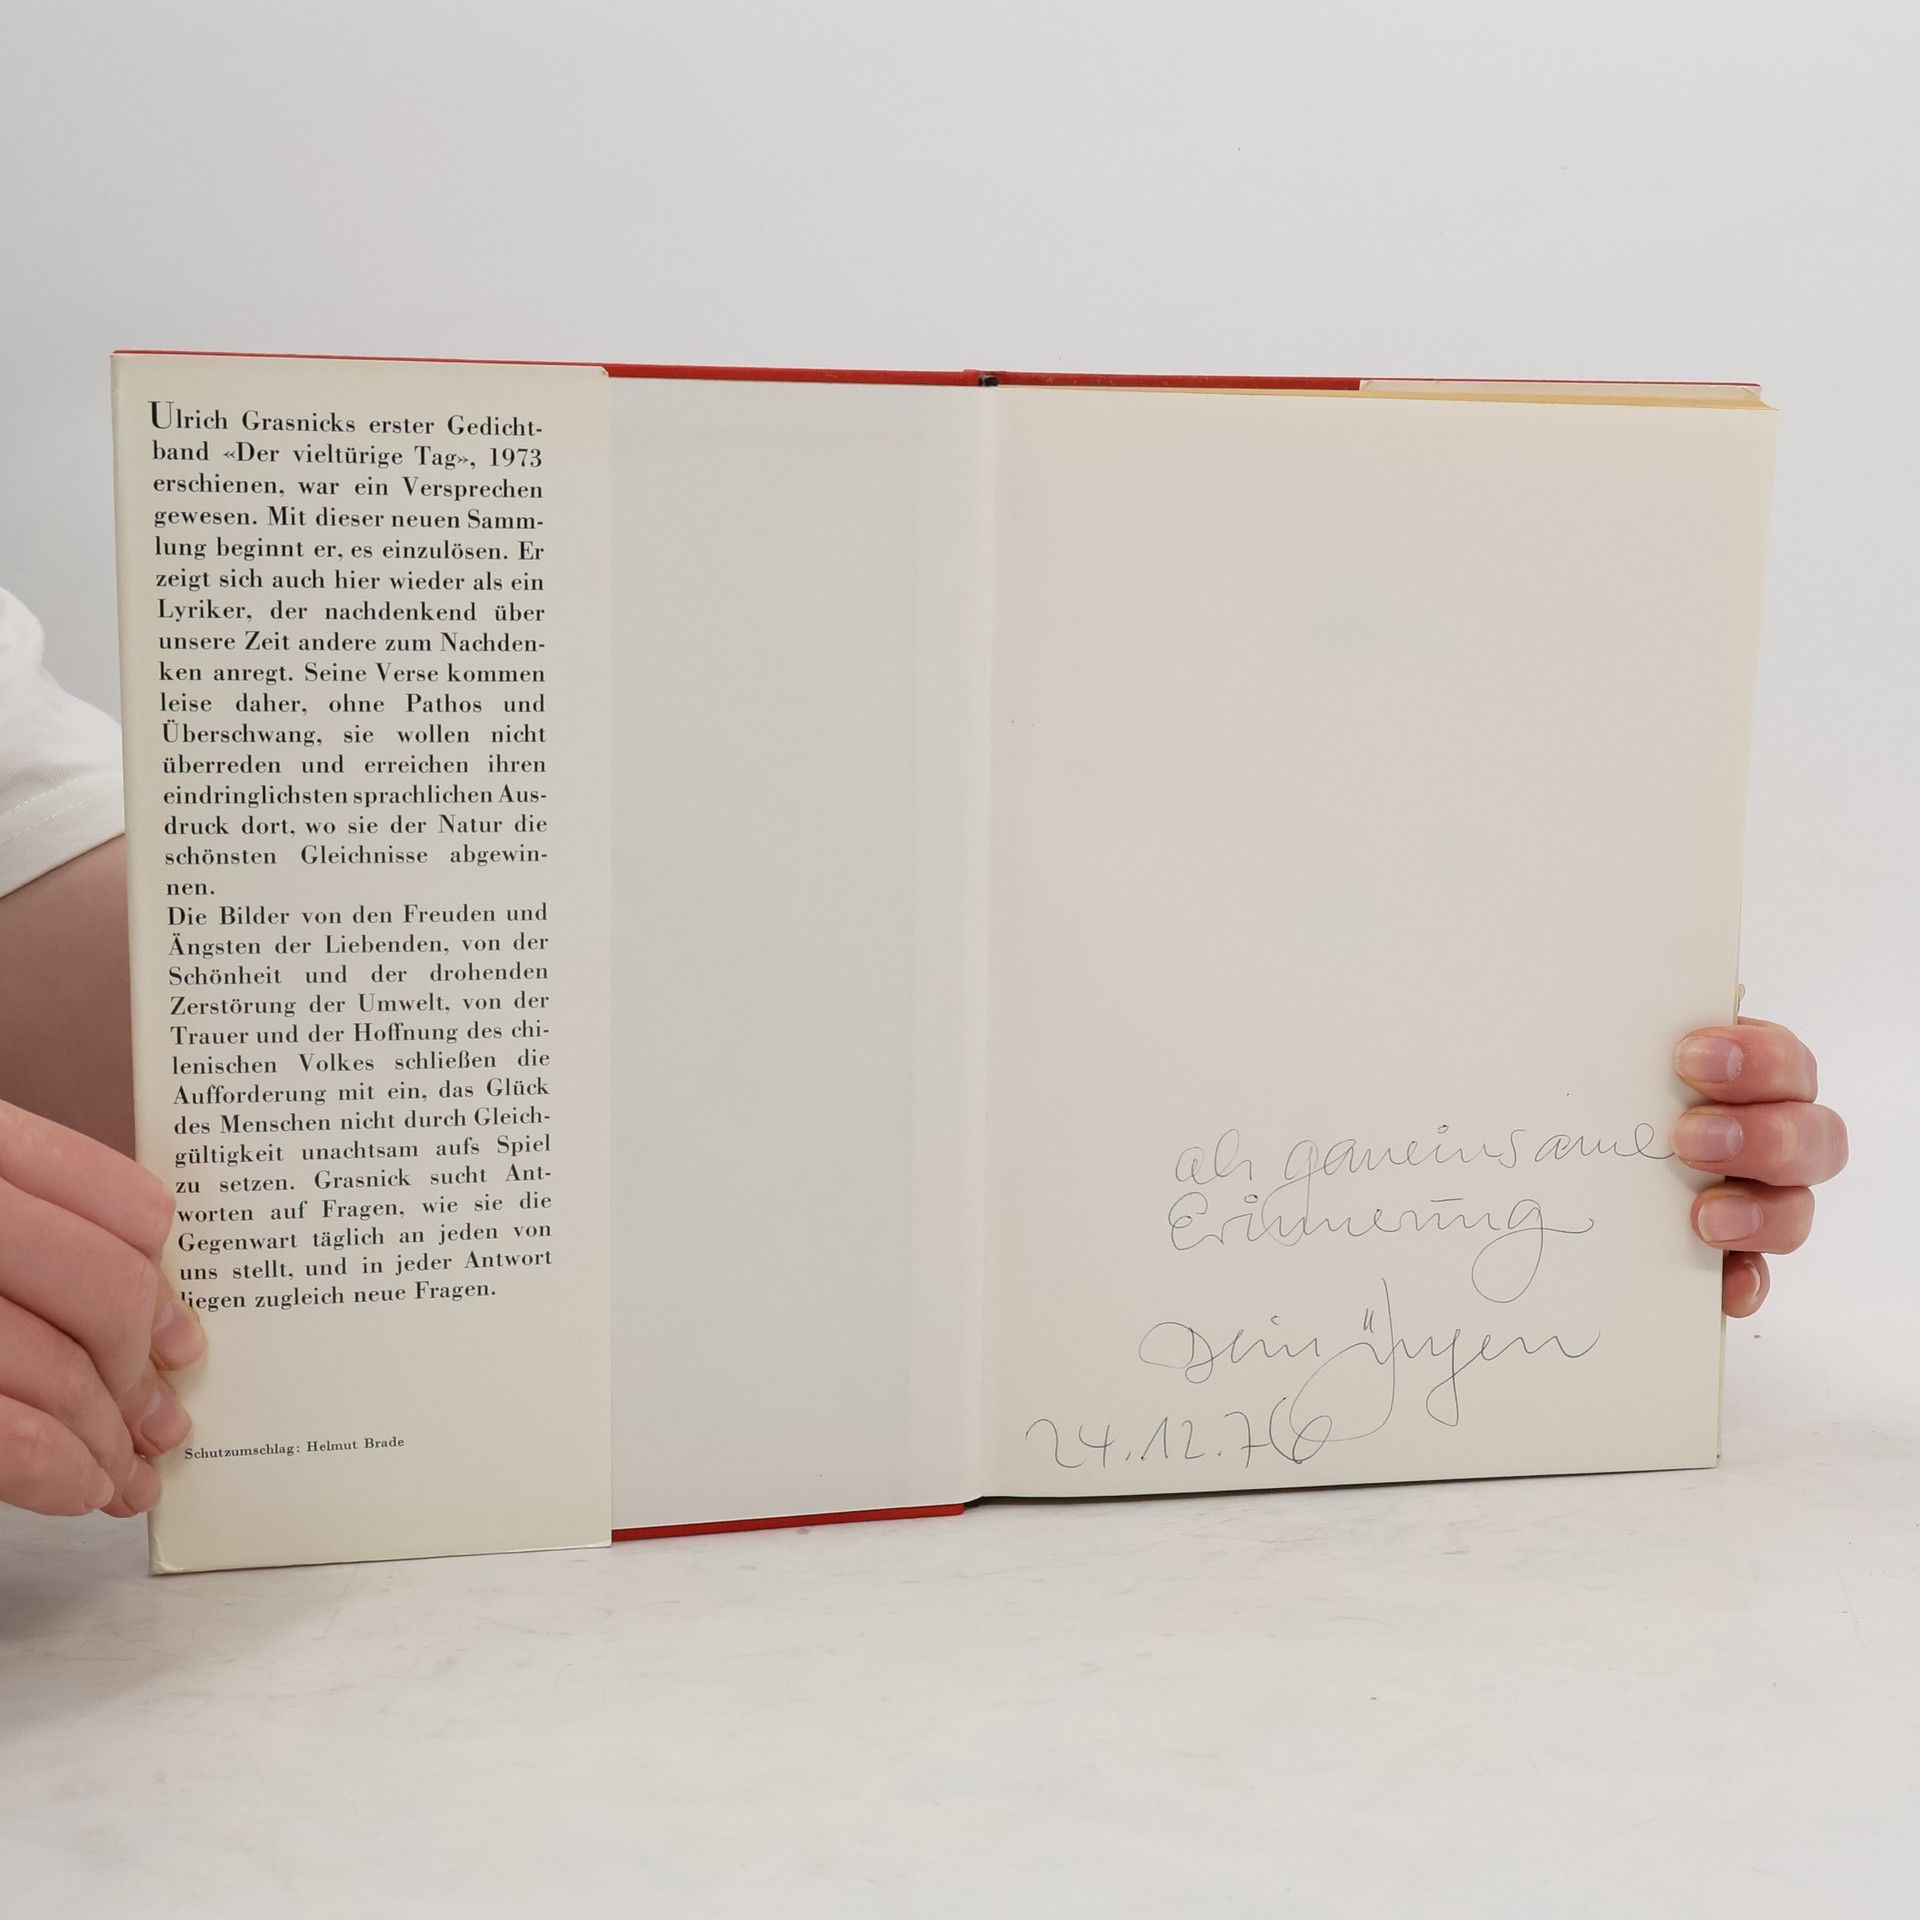 Ulrich Grasnicks erster Gedicht-
band «Der vieltürige Tag», 1973
erschienen, war ein Versprechen
gewesen. Mit dieser neuen Samm-
lung beginnt er, es einzulösen. Er
zeigt sich auch hier wieder als ein
Lyriker, der nachdenkend über
unsere Zeit andere zum Nachden-
ken anregt. Seine Verse kommen
leise daher, ohne Pathos und
Überschwang, sie wollen nicht
überreden und erreichen ihren
eindringlichsten sprachlichen Aus-
druck dort, wo sie der Natur die
schönsten Gleichnisse abgewin-
nen.
Die Bilder von den Freuden und
Ängsten der Liebenden, von der
Schönheit und der drohenden
Zerstörung der Umwelt, von der
Trauer und der Hoffnung des chi-
lenischen Volkes schließen die
Aufforderung mit ein, das Glück
des Menschen nicht durch Gleich-
gültigkeit unachtsam aufs Spiel
zu setzen. Grasnick sucht Ant-
worten auf Fragen, wie sie die
Gegenwart täglich an jeden von
uns stellt, und in jeder Antwort
liegen zugleich neue Fragen.
Schutzumschlag: Helmut Brade
als gemeinsame
Erinnerung
Dein Jürgen
24.12.76